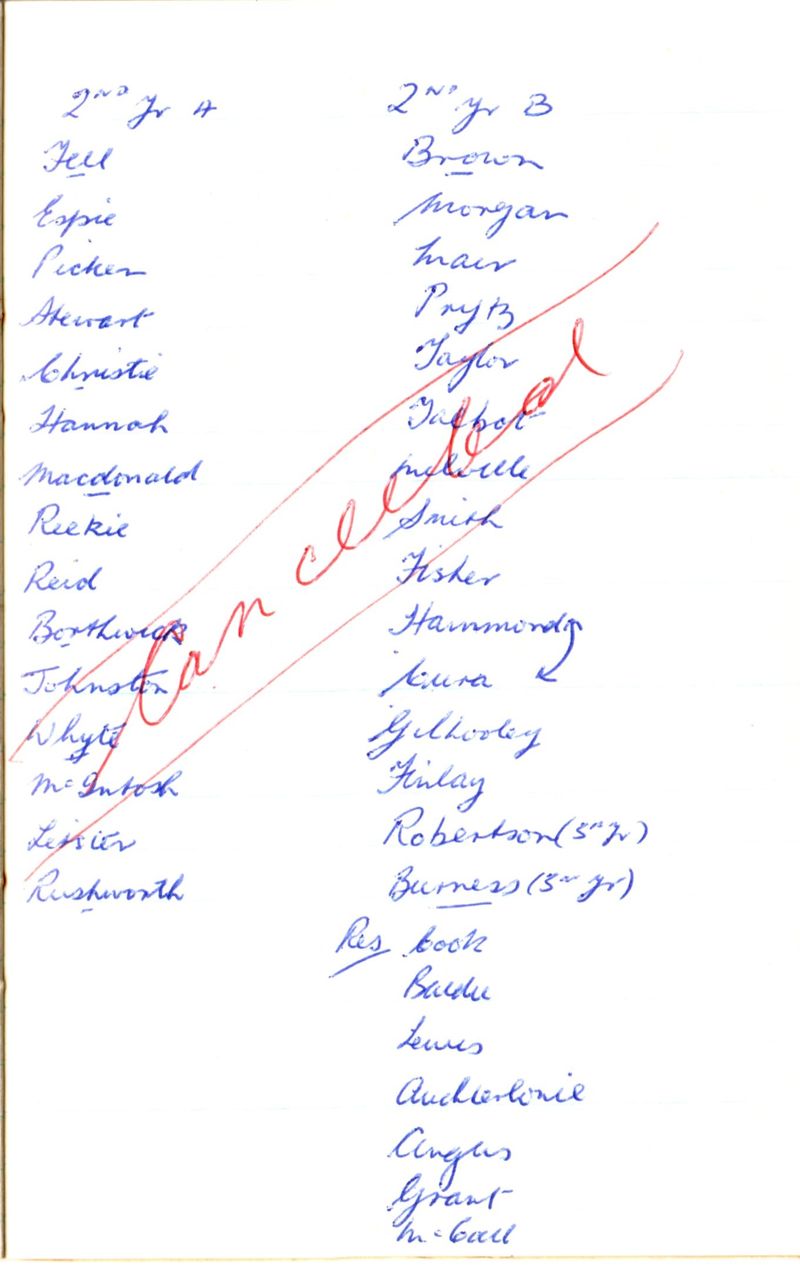 2ND Yr A
Fell
Espie
Picken
Stewart
Christie
Hannah
Macdonald
Reekie
Reid
Borthwick
Johnston
Whyte
McIntosh
Rushworth
2ND Yr B
Brown
Morgan
Mair
Prytz
Taylor
Talbot
Melville
Smith
Fisher
Hammond
Cura
Gilhooley
Finlay
Robertson (3rd Yr)
Burness (3rd Yr)
Res Cook
Lewis
Auchterlonie
Angus
Grant
McCall
Cancelled